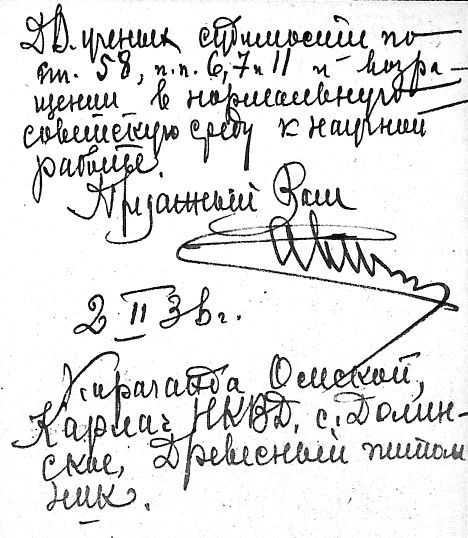 судимости по
ст. 58, п.п. 6, 7 и 11 и возра-
щении в нормальную
советскую среду к научной
работе.
Преданный Вам
2 II 36 г.
Караганда Омской,
Карлаг НКВД, с. Долин-
ское, Древесный питом
ник.